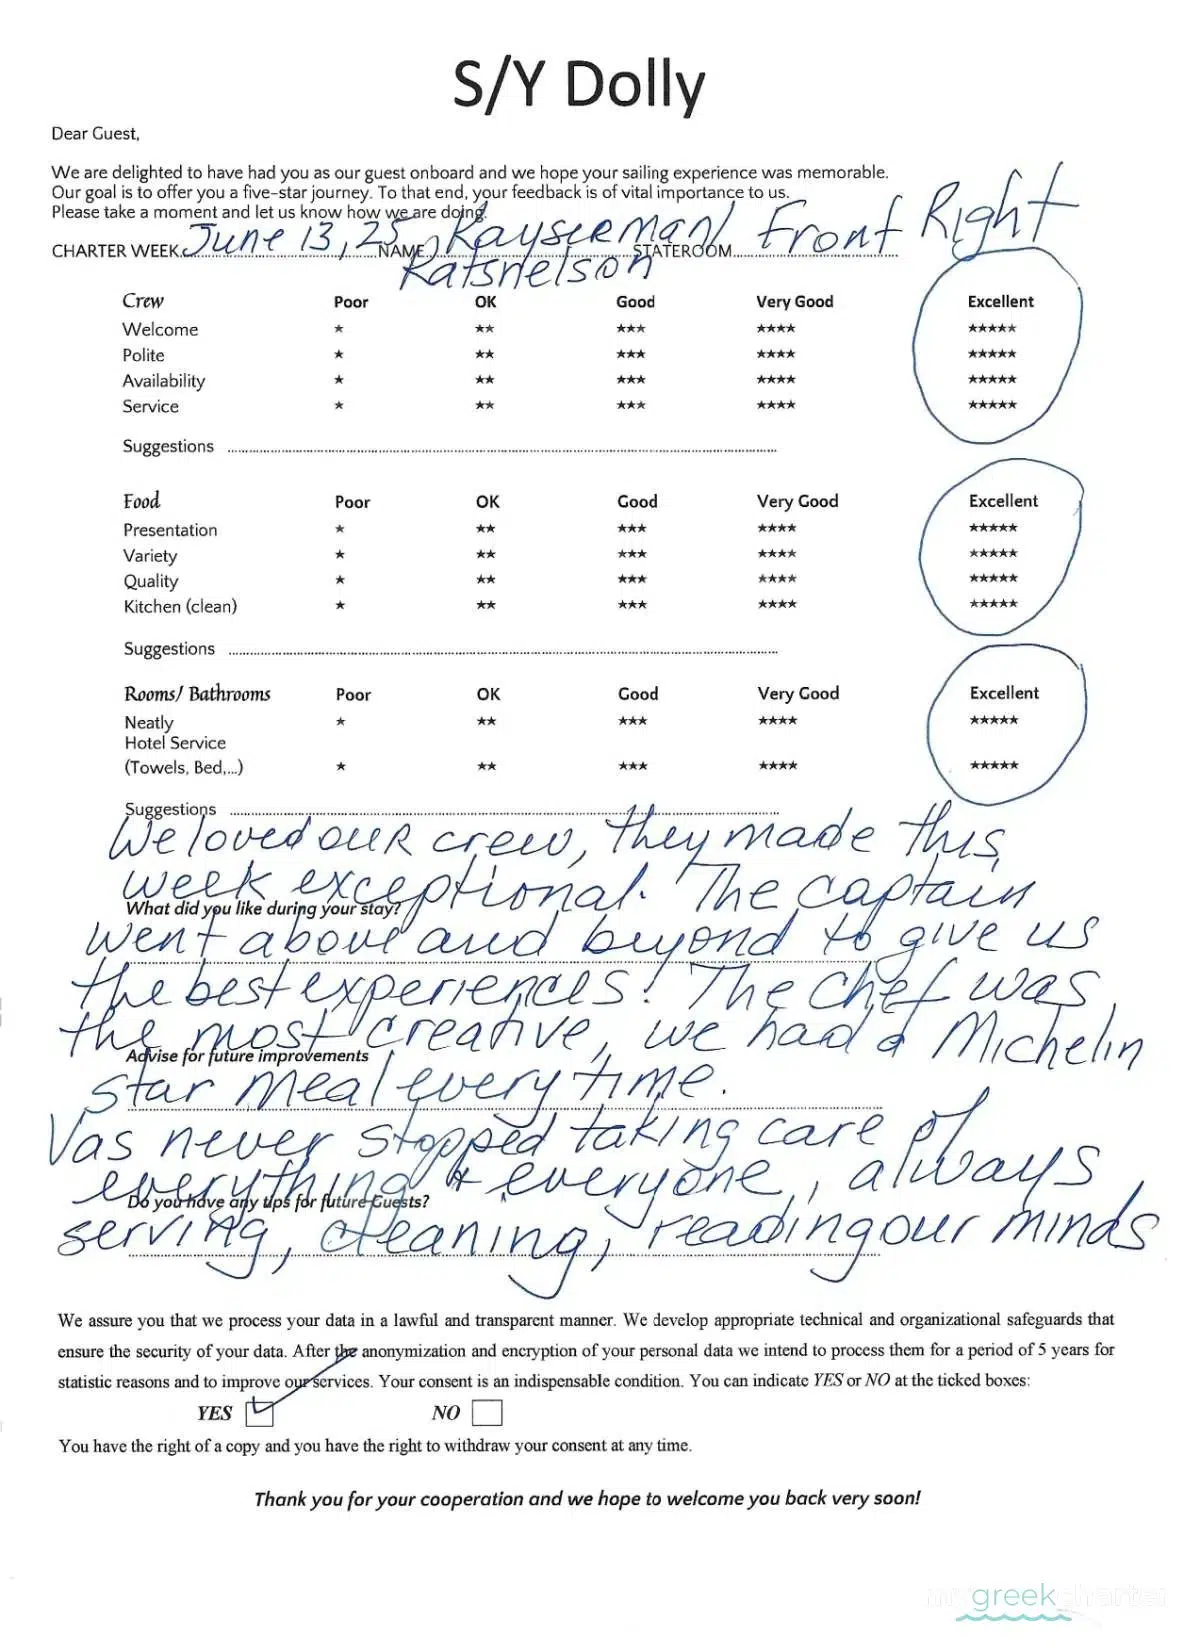 S/Y Dolly
Dear Guest,
We are delighted to have had you as our guest onboard and we hope your sailing experience was memorable.
Our goal is to offer you a five-star journey. To that end, your feedback is of vital importance to us.
Please take a moment and let us know how we are doing.
CHARTER WEEK June 13, 25 NAME Kayserman/ Katsnelson STATEROOM Front Right
Crew Poor OK Good Very Good Excellent
Welcome ★ ★★ ★★★ ★★★★ ★★★★★
Polite ★ ★★ ★★★ ★★★★ ★★★★★
Availability ★ ★★ ★★★ ★★★★ ★★★★★
Service ★ ★★ ★★★ ★★★★ ★★★★★
Suggestions
Food Poor OK Good Very Good Excellent
Presentation ★ ★★ ★★★ ★★★★ ★★★★★
Variety ★ ★★ ★★★ ★★★★ ★★★★★
Quality ★ ★★ ★★★ ★★★★ ★★★★★
Kitchen (clean) ★ ★★ ★★★ ★★★★ ★★★★★
Suggestions
Rooms/ Bathrooms Poor OK Good Very Good Excellent
Neatly ★ ★★ ★★★ ★★★★ ★★★★★
Hotel Service
(Towels, Bed,...) ★ ★★ ★★★ ★★★★ ★★★★★
Suggestions
We loved our crew, they made this
week exceptional. The captain
What did you like during your stay?
went above and beyond to give us
the best experiences! The chef was
the most creative, we had a Michelin
Advise for future improvements
star meal every time.
Vas never stopped taking care of
everything & everyone, always
Do you have any tips for future Guests?
serving, cleaning, reading our minds
We assure you that we process your data in a lawful and transparent manner. We develop appropriate technical and organizational safeguards that
ensure the security of your data. After the anonymization and encryption of your personal data we intend to process them for a period of 5 years for
statistic reasons and to improve our services. Your consent is an indispensable condition. You can indicate YES or NO at the ticked boxes:
YES NO
You have the right of a copy and you have the right to withdraw your consent at any time.
Thank you for your cooperation and we hope to welcome you back very soon!
mygreekcharter